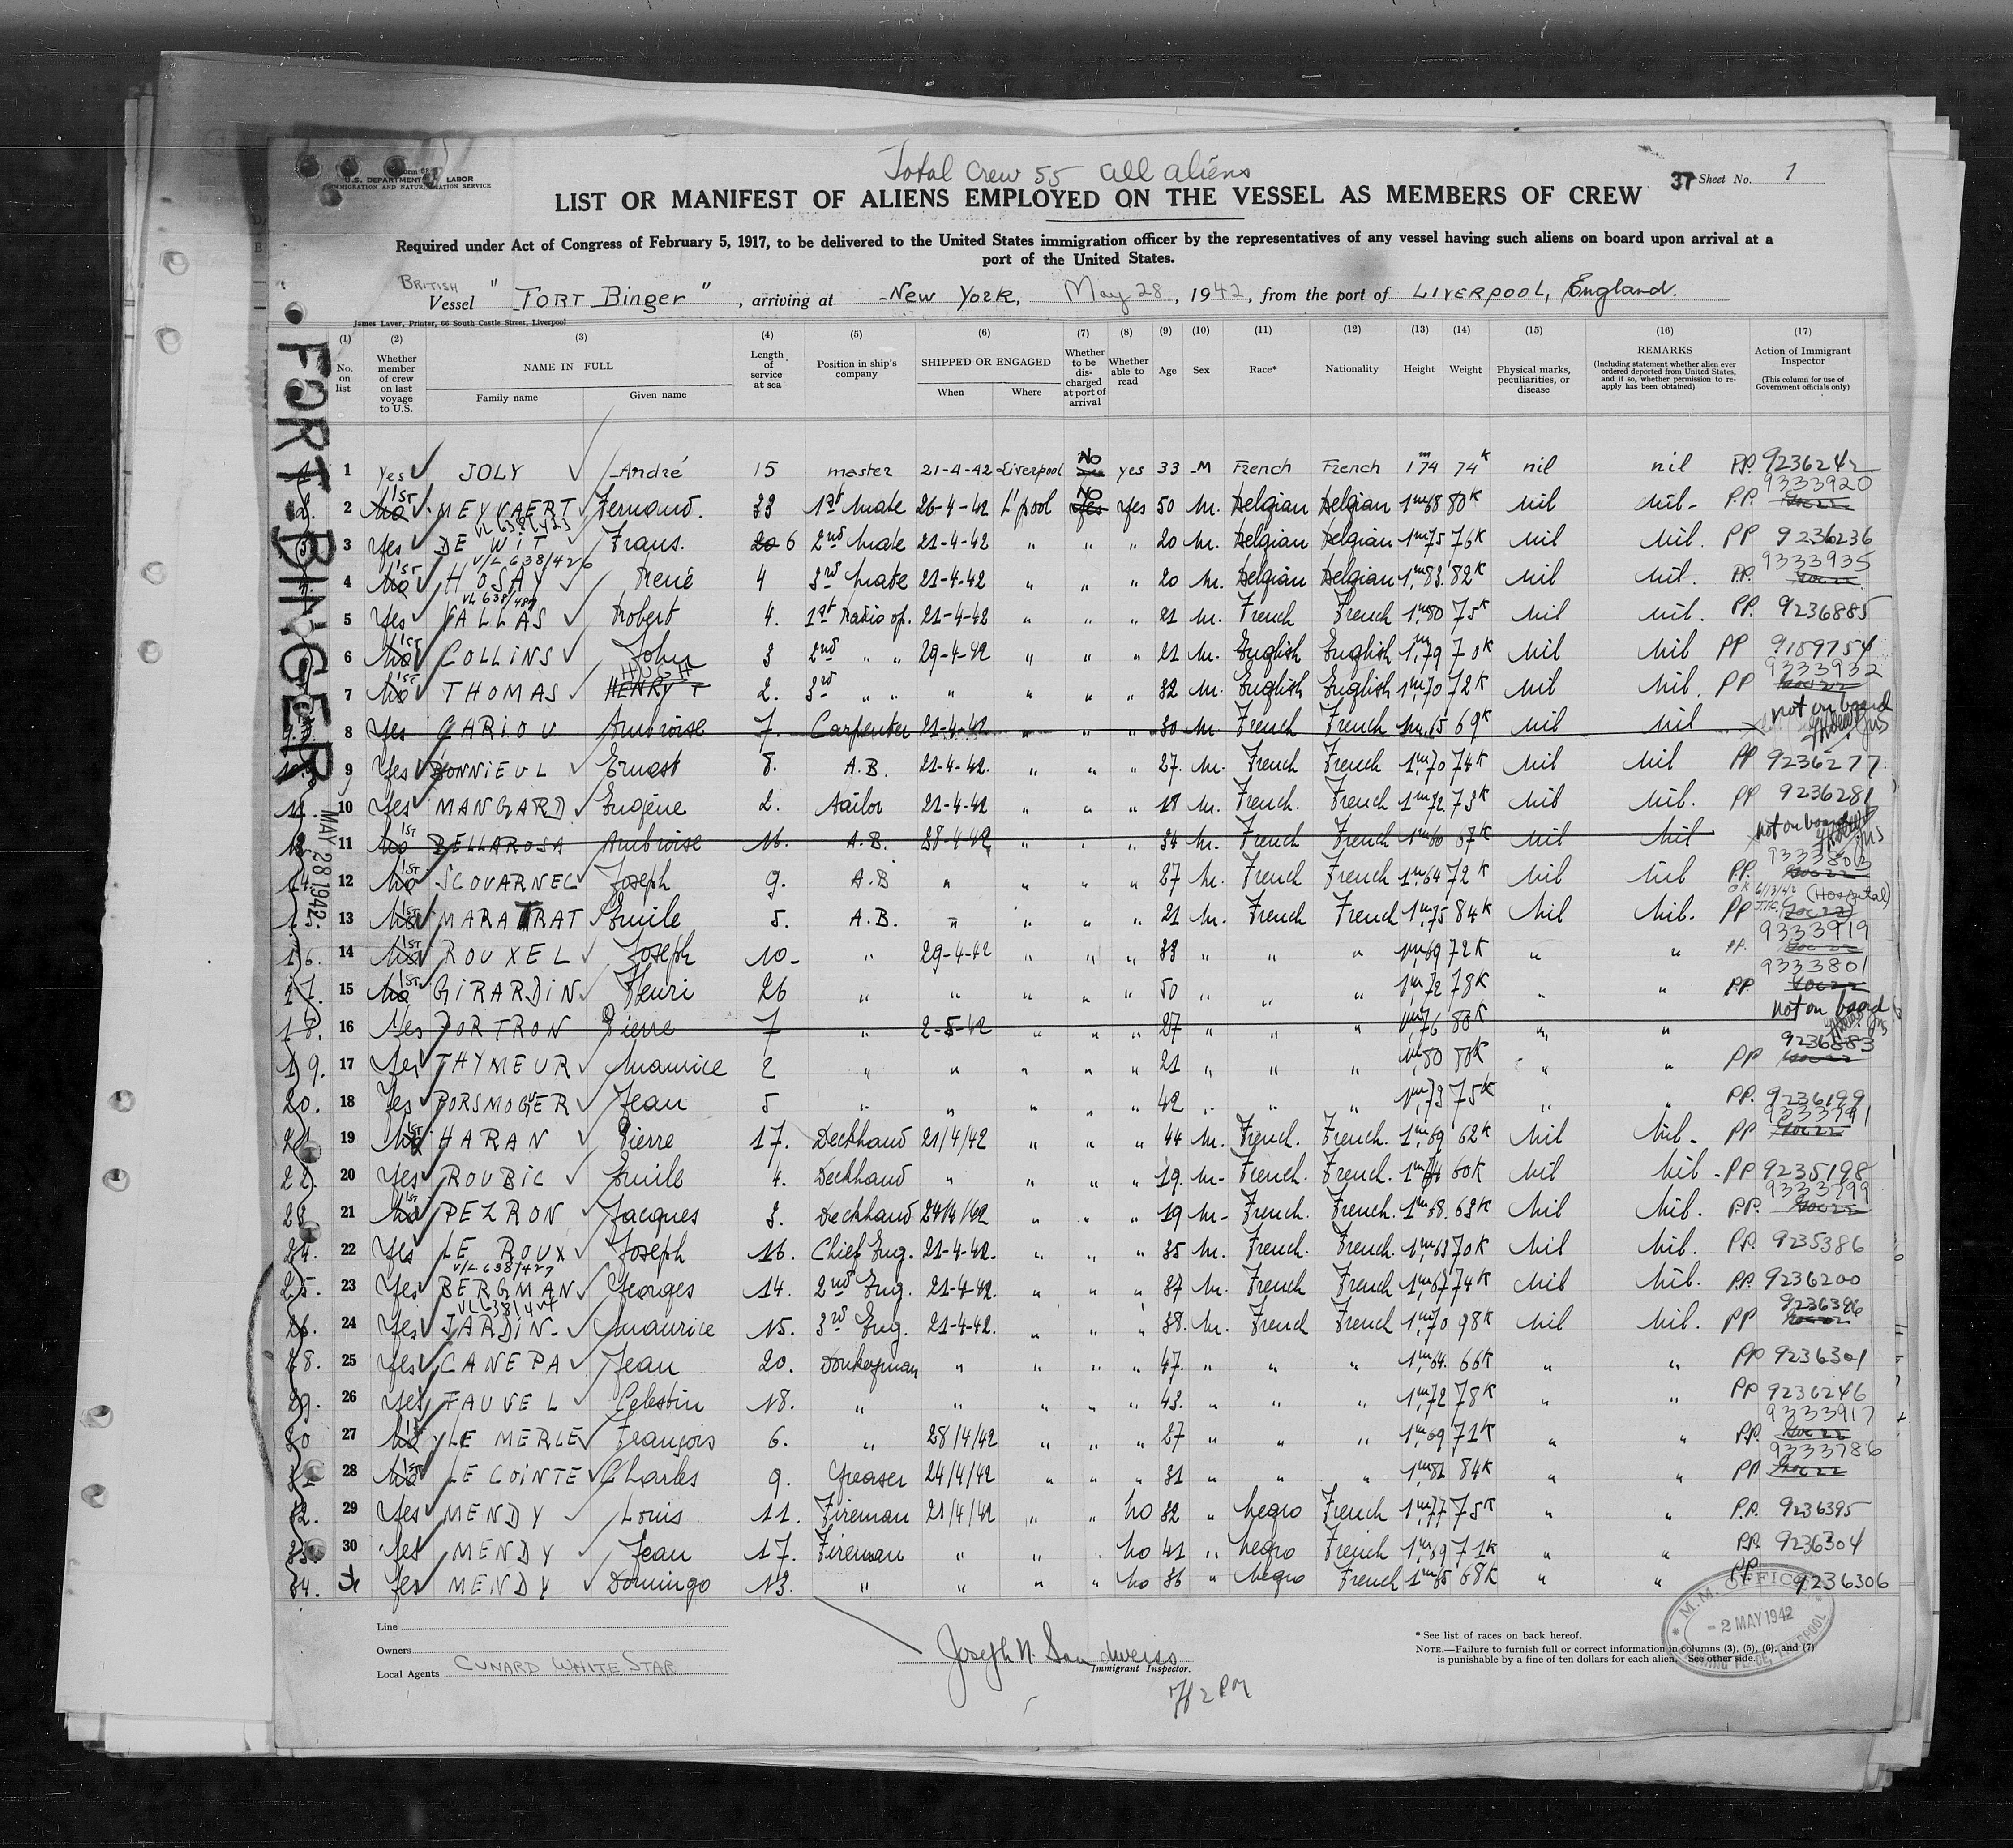 Total Crew 55 all aliens
U.S. DEPARTMENT LABOR
IMMIGRATION AND NATURALIZATION SERVICE
37 Sheet No. 1
LIST OR MANIFEST OF ALIENS EMPLOYED ON THE VESSEL AS MEMBERS OF CREW
Required under Act of Congress of February 5, 1917, to be delivered to the United States immigration officer by the representatives of any vessel having such aliens on board upon arrival at a
port of the United States.
BRITISH
Vessel " FORT Binger ", arriving at New York, May 28, 1942, from the port of LIVERPOOL, England.
James Laver, Printer, 66 South Castle Street, Liverpool
FORT-BINGER
MAY 28 1942
(1) (2) (3) (4) (5) (6) (7) (8) (9) (10) (11) (12) (13) (14) (15) (16) (17)
No. on list
Whether member of crew on last voyage to U.S.
NAME IN FULL
Family name
Given name
Length of service at sea
Position in ship's company
SHIPPED OR ENGAGED
When
Where
Whether to be discharged at port of arrival
Whether able to read
Age
Sex
Race*
Nationality
Height
Weight
Physical marks, peculiarities, or disease
REMARKS
(Including statement whether alien ever ordered deported from United States, and if so, whether permission to reapply has been obtained)
Action of Immigrant Inspector
(This column for use of Government officials only)
1 Yes JOLY André 15 master 21-4-42 Liverpool No yes 33 M French French 1m74 74K nil nil PP. 9236242
2 No 1ST MEYVAERT Fernand. 33 1st Mate 26-4-42 L'pool No Yes Yes 50 M. Belgian Belgian 1m68 80K Nil Nil- P.P. 9333920
VL 638/423
3 Yes DE WIT Frans. 20 6 2nd Mate 21-4-42 " " " 20 M. Belgian Belgian 1m75 76K Nil Nil. PP 9236236
V/L 638/426
4 No 1ST HOSAY René 4 3rd Mate 21-4-42 " " " 20 M. Belgian Belgian 1m83. 82K Nil Nil. PP. 9333935
5 Yes VALLAS Robert 4. 1st Radio op. 21-4-42 " " " 21 M. French French 1m80 75K Nil Nil. PP. 9236885
6 No 1ST COLLINS John 3 2nd " " 29-4-42 " " " 21 M. English English 1m79 70K Nil Nil PP 9189754
7 No 1ST THOMAS HENRY T HUGH 2. 3rd " " " " " " 32 M. English English 1m70 72K Nil Nil. PP 9333932
8 Yes CARIOU Ambroise 7. Carpenter 21-4-42 " " " 30 M. French French 1m65 69K Nil Nil not on board
9 Yes BONNIEUL Ernest 8. A.B. 21-4-42. " " " 27. M. French French 1m70 74K Nil Nil PP 9236277
10 Yes MANGARD Eugène 2. Sailor 21-4-42 " " " 18 M. French. French 1m72. 73K Nil Nil. PP 9236281
11 No 1ST BELLAROSA Ambroise 16. A.B. 28-4-42 " " " 34 M. French French 1m60 67K Nil Nil not on board
12 No 1ST SCOUARNEC Joseph 9. A.B " " " " 27 M. French French 1m64 72K Nil Nil PP. 9333803
13 No 1ST MARATRAT Emile 5. A.B. " " " " 21 M. French French 1m75 84K Nil Nil. PP (Hospital)
14 No 1ST ROUXEL Joseph 10- " 29-4-42 " " " 33 " " " 1m69 72K " " PP. 9333919
15 No 1ST GIRARDIN Henri 26 " " " " " 50 " " " 1m72 78K " " PP 9333801
16 Yes PORTRON Pierre 7 " 2-5-42 " " " 27 " " " 1m76 80K " " not on board
17 Yes THYMEUR Maurice 2 " " " " " 21 " " " 1m80 80K " " PP 9236883
18 Yes PORSMOGUER Jean 5 " " " " " 42 " " " 1m73 75K " " PP. 9236199
19 No 1ST HARAN Pierre 17. Deckhand 21/4/42 " " " 44 M. French. French. 1m69 62K Nil Nil- PP 9333791
20 Yes ROUBIC Emile 4. Deckhand " " " " 19. M- French. French. 60K Nil Nil - PP 9235198
21 No 1ST PEZRON Jacques 3. Deckhand 24/4/42 " " " 19 M- French. French. 1m68. 63K Nil Nil. PP. 9333799
22 Yes LE ROUX Joseph 16. Chief Eng. 21-4-42. " " " 35 M. French. French. 1m63 70K Nil Nil. PP. 9235386
V/L 638/427
23 Yes BERGMAN Georges 14. 2nd Eng. 21-4-42. " " " 37 M. French French 1m67 74K Nil Nil. PP. 9236200
24 Yes JARDIN- Maurice 15. 3rd Eng. 21-4-42. " " " 38. M. French French 1m70 98K Nil Nil. PP 9236396
25 Yes CANEPA Jean 20. Donkeyman " " " " 47. " " " 1m64. 66K " " PP 9236301
26 Yes FAUVEL Celestin 18. " " " " " 43. " " " 1m72 78K " " PP 9236246
27 No 1ST LE MERLE François 6. " 28/4/42 " " " 27 " " " 1m69 71K " " PP. 9333917
28 No 1ST LE COINTE Charles 9. Greaser 24/4/42 " " " 31 " " " 84K " " PP 9333786
29 Yes MENDY Louis 11. Fireman 21/4/42 " " No 32 " Negro French 1m77 75K " " P.P. 9236395
30 Yes MENDY Jean 17. Fireman " " No 41 " Negro French 1m69 71K " " PP. 9236304
34. Yes MENDY Domingo 13. " " " " No 36 " Negro French 1m65 68K " " PP. 9236306
Line
Owners
Local Agents CUNARD WHITE STAR
Joseph N. Sandweiss
Immigrant Inspector.
2 PM
* See list of races on back hereof.
NOTE.—Failure to furnish full or correct information in columns (3), (5), (6), and (7)
is punishable by a fine of ten dollars for each alien. See other side.
M.M. OFFICE
- 2 MAY 1942
LIVERPOOL